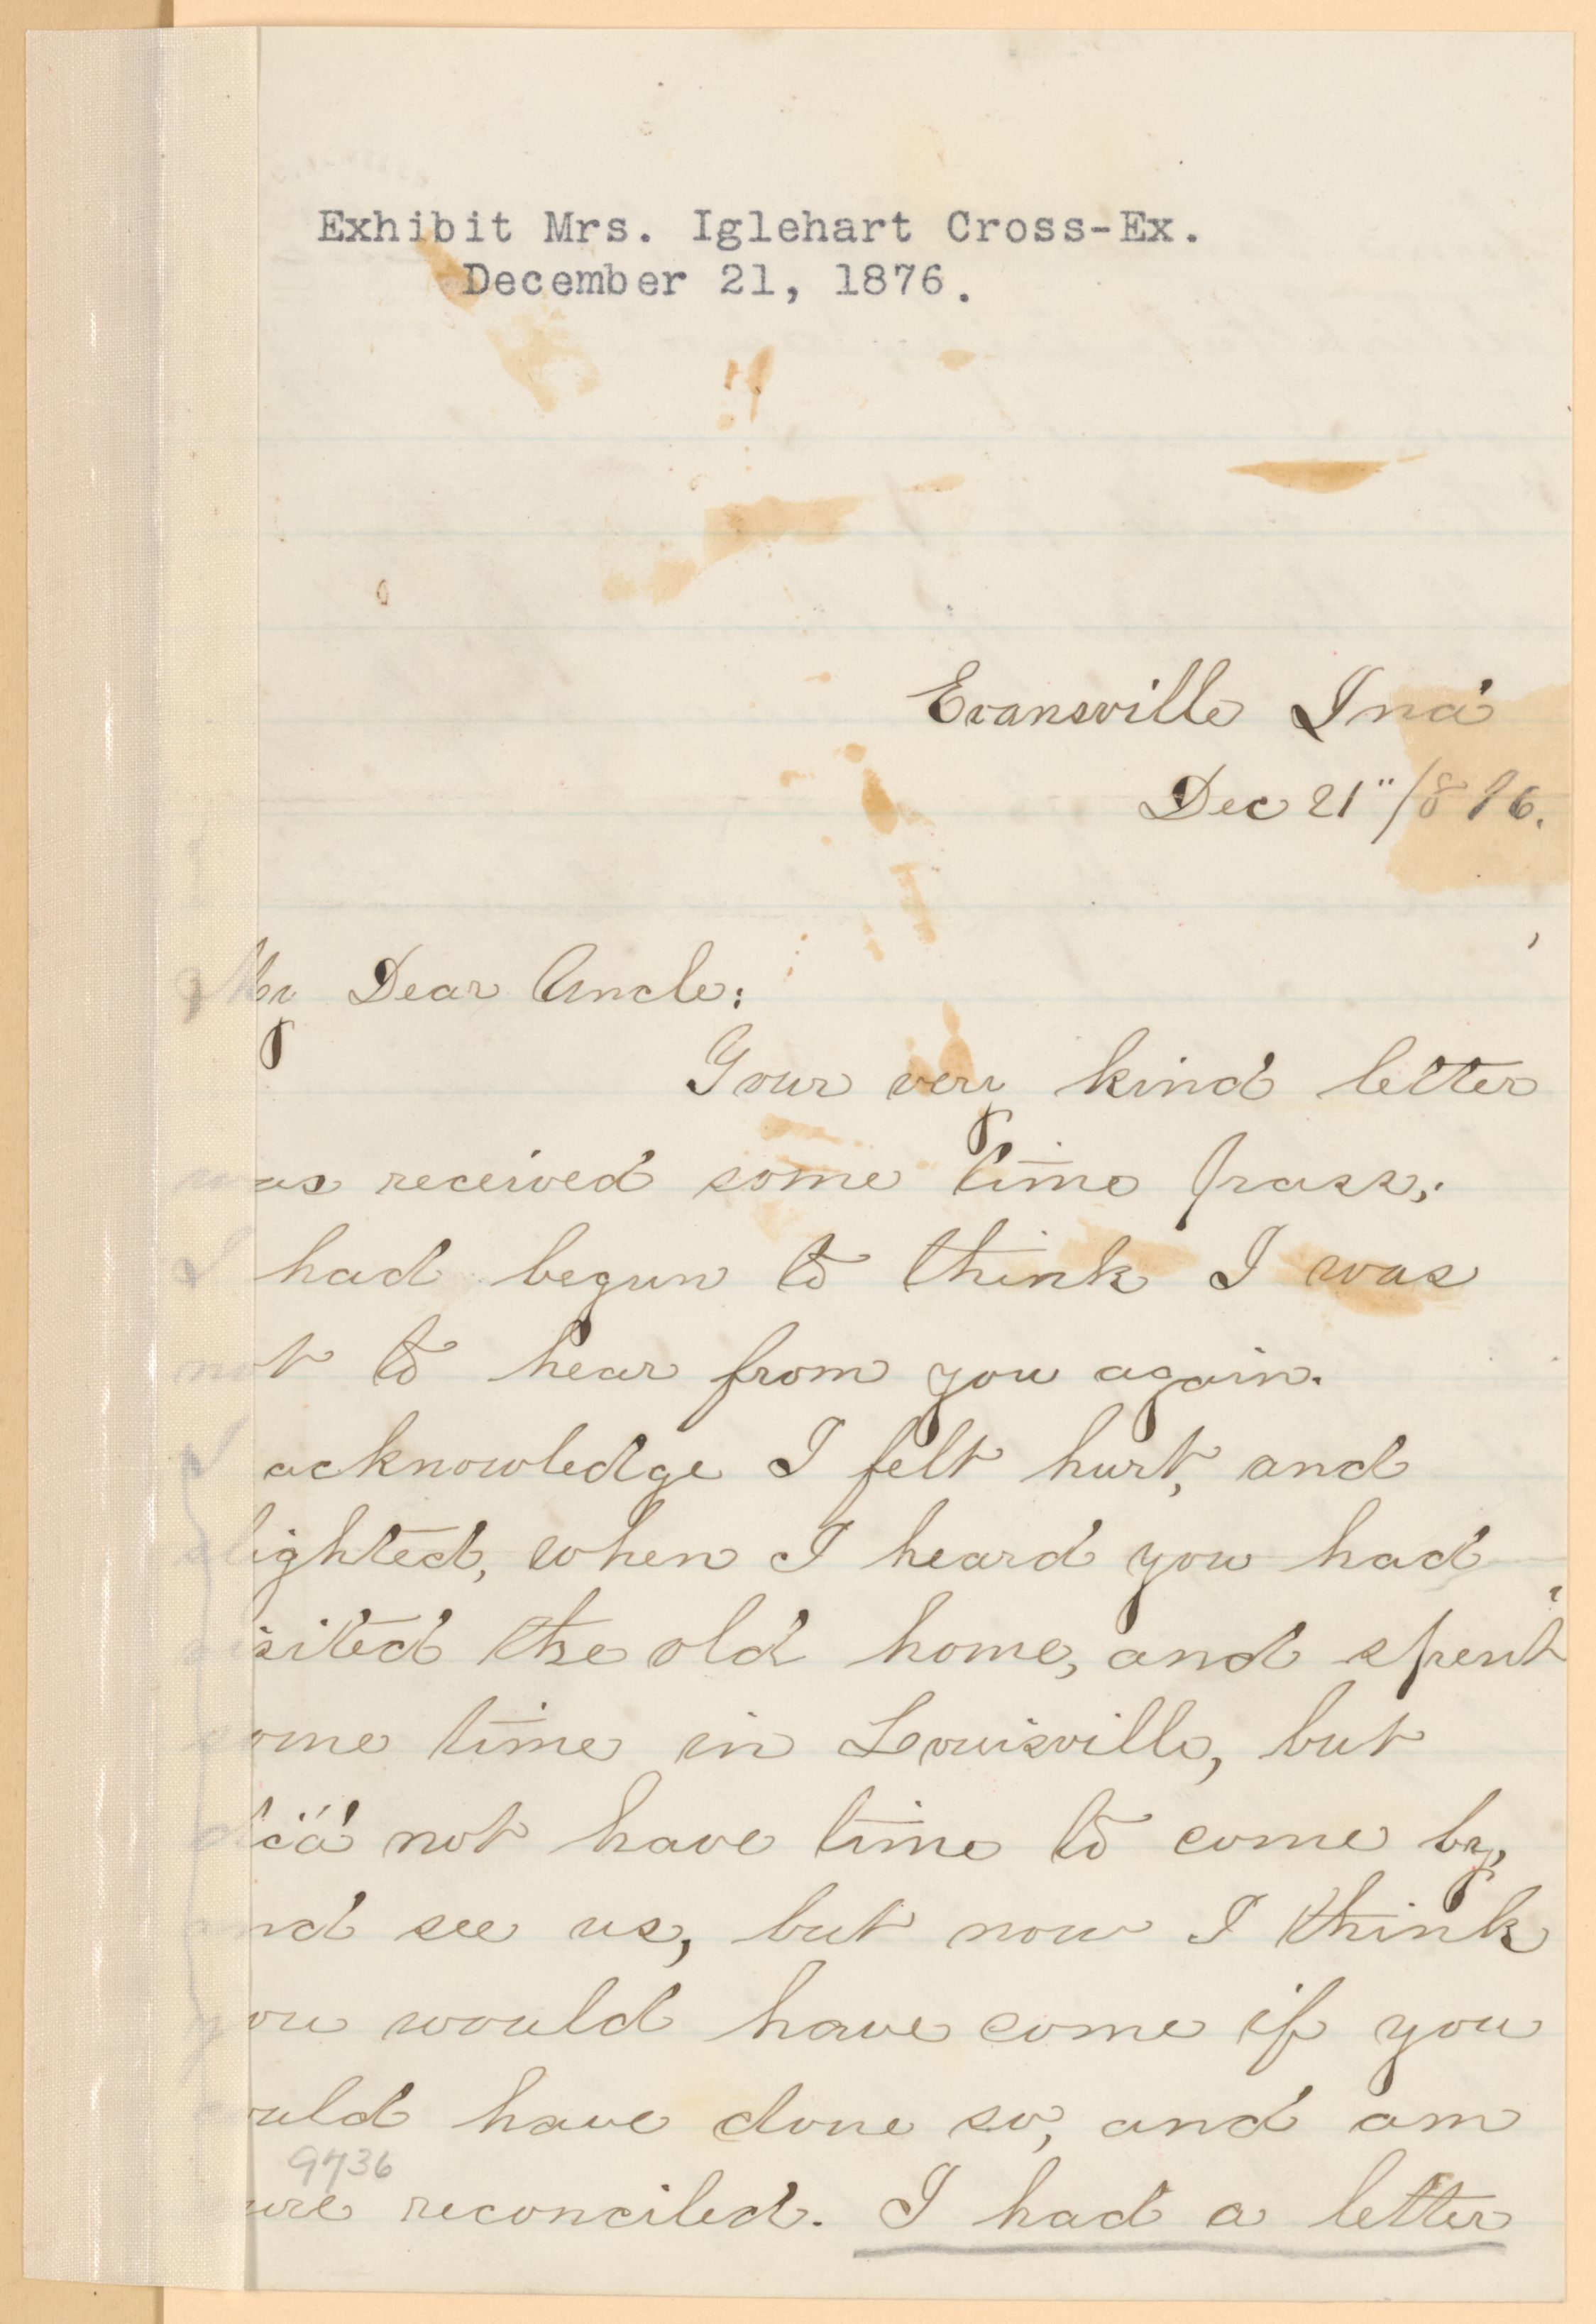 Exhibit Mrs. Iglehart Cross-Ex.
December 21, 1876.
Evansville Ind
Dec 21"/876.
My Dear Uncle:
Your very kind letter
was received some time pass,.
I had begun to think I was
not to hear from you again.
I acknowledge I felt hurt, and
slighted, when I heard you had
visited the old home, and spent
some time in Louisville, but
did not have time to come by,
and see us, but now I think
you would have come if you
could have done so, and am
9736
more reconciled. I had a letter